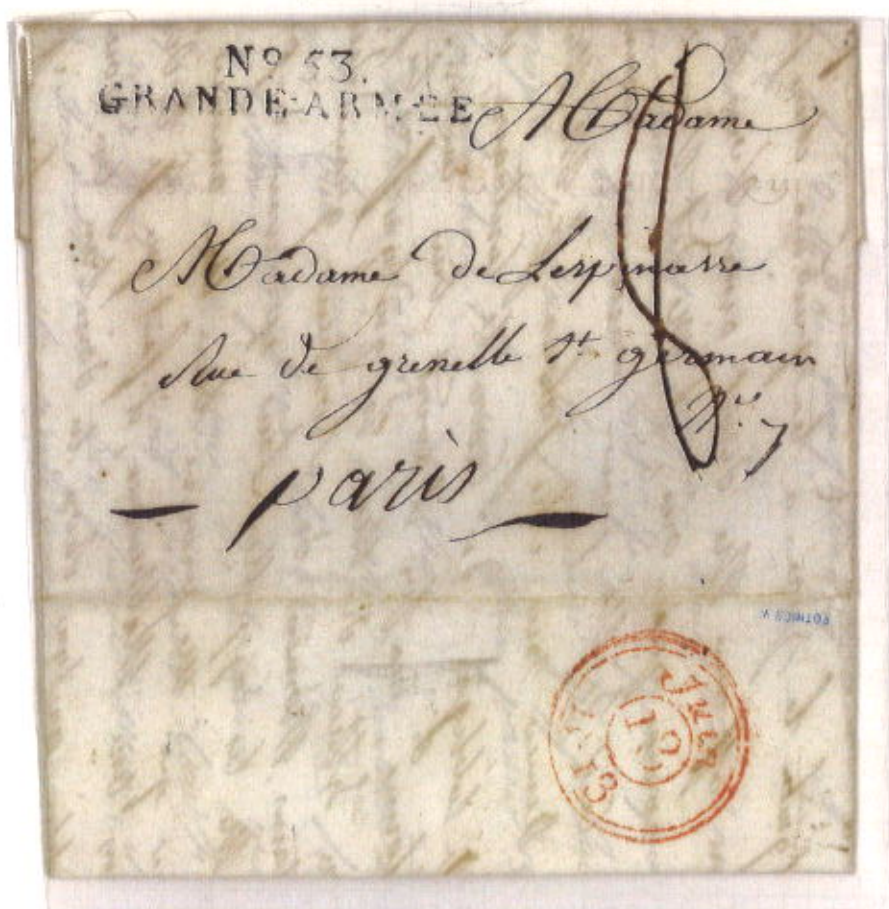 No 53.
GRANDE-ARMÉE
A Madame
Madame de Lespinasse
Rue de grenelle St. germain
No. 7
paris
Juin
12